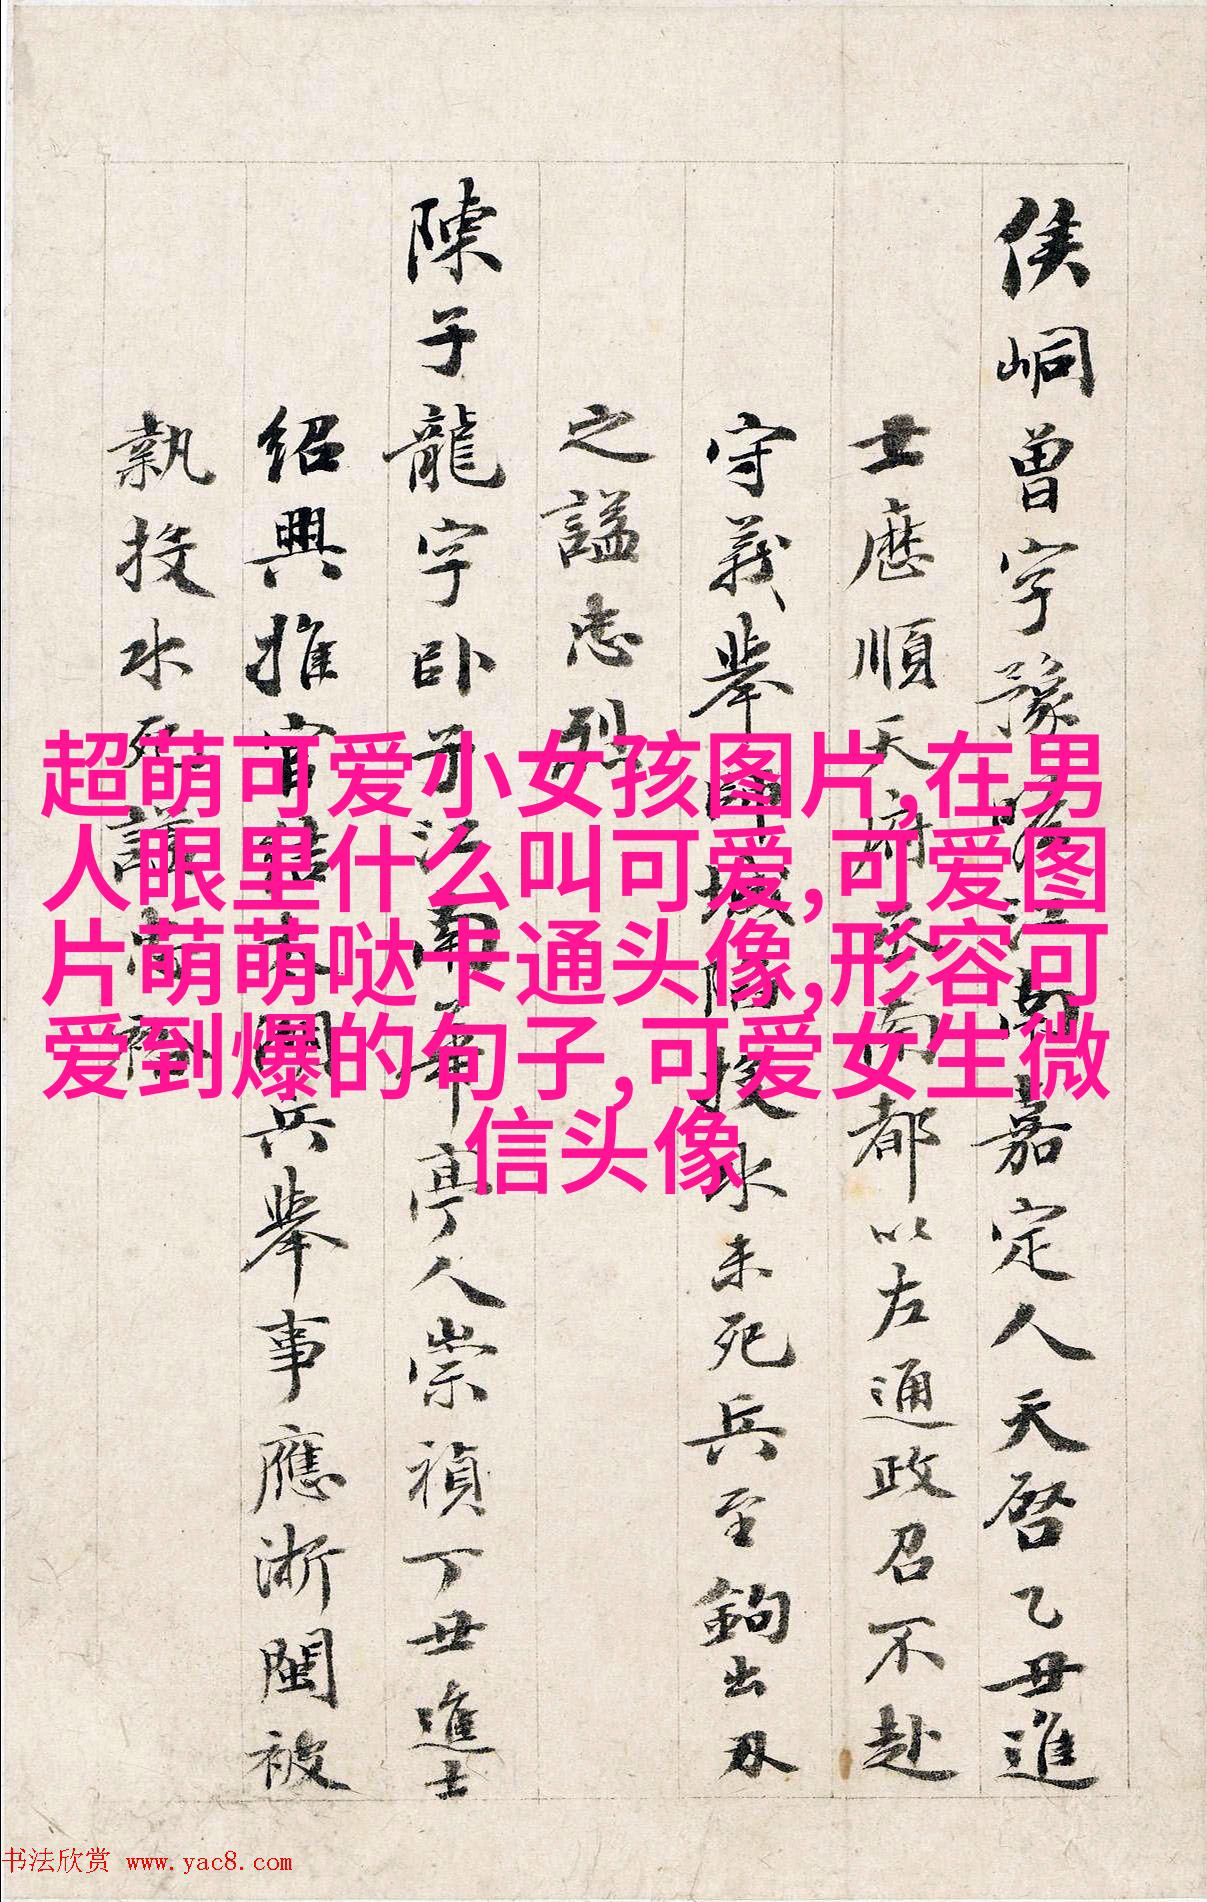 侯峒曾字豫瞻江南嘉定人天啓乙丑進
士歷順天府丞南都以左通政召不赴
守義舉田城陷投水未死兵至鉤出刃
之謚忠烈
陳子龍字臥子江南華亭人崇禎丁丑進士
紹興推官結太湖兵舉事應浙閩被
執投水死謚忠裕
超萌可爱小女孩图片,在男
人眼里什么叫可爱,可爱图
片萌萌哒卡通头像,形容可
爱到爆的句子,可爱女生微
信头像
书法欣赏 www.yac8.com